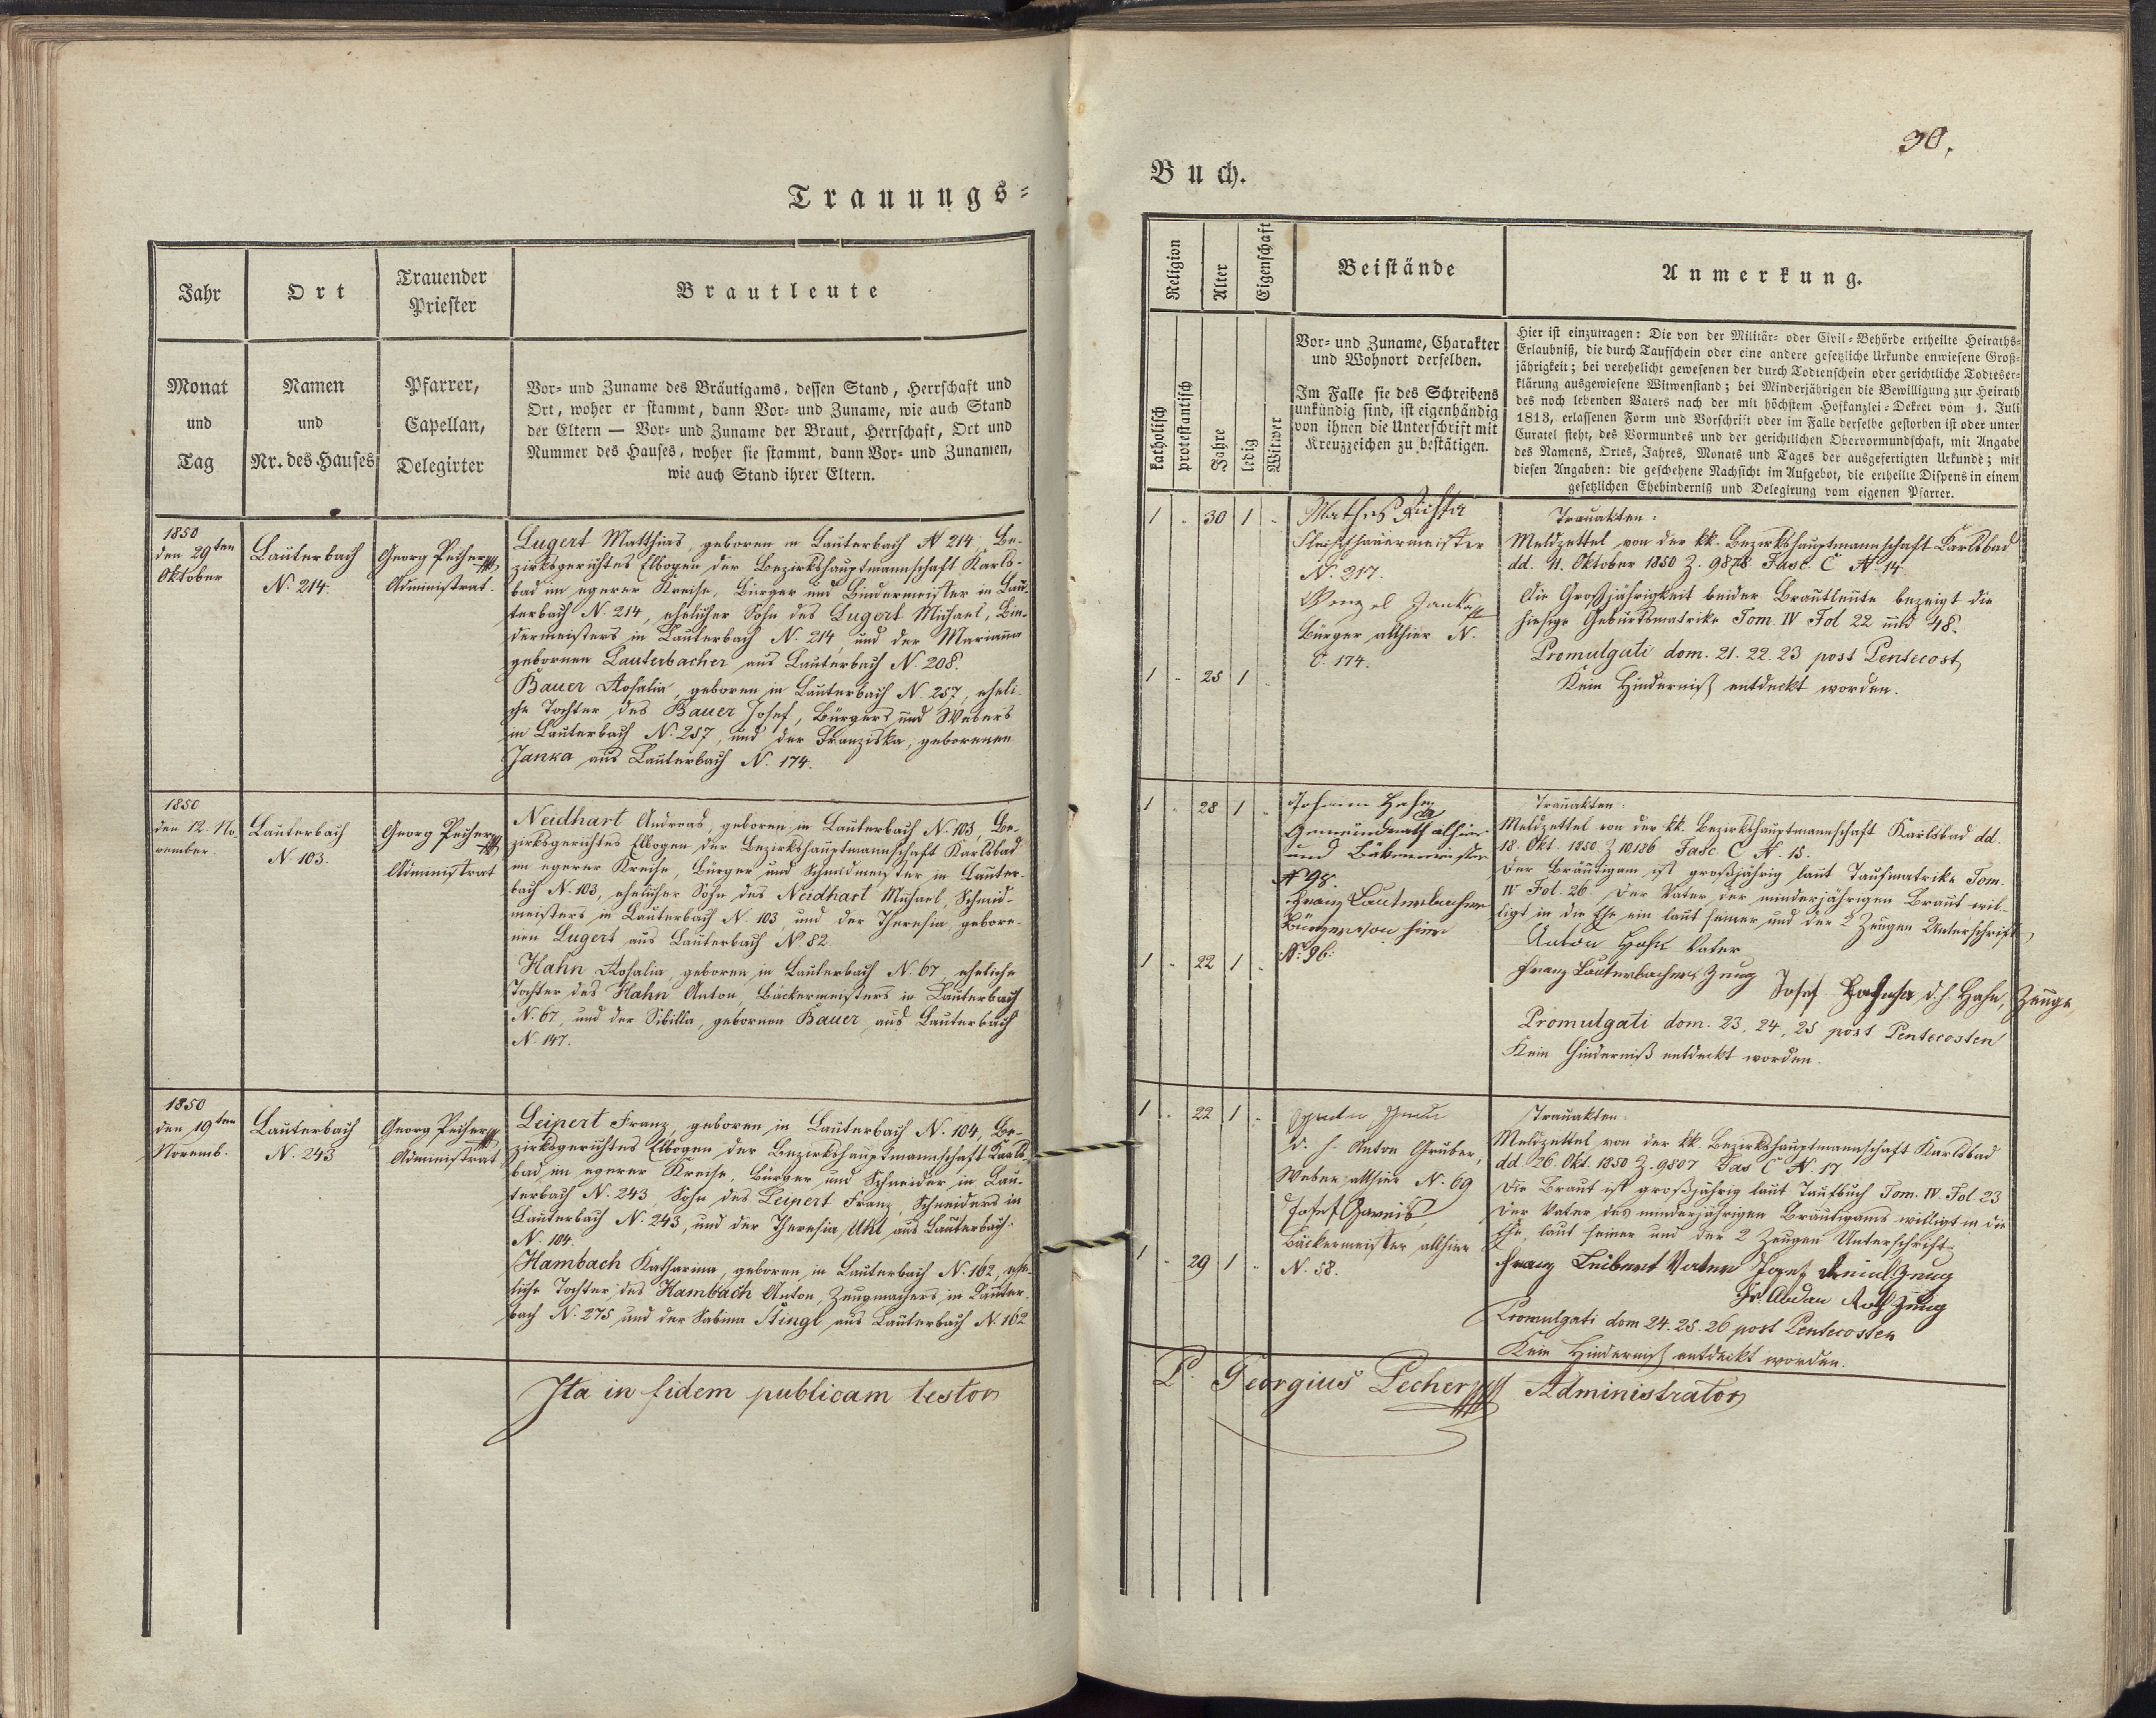 Trauungs=
Jahr
Ort
Trauender
Priester
Brautleute
Monat
und
Tag
Namen
und
Nr. des Hauses
Pfarrer,
Capellan,
Delegirter
Vor= und Zuname des Bräutigams, dessen Stand, Herrschaft und
Ort, woher er stammt, dann Vor= und Zuname, wie auch Stand
der Eltern — Vor= und Zuname der Braut, Herrschaft, Ort und
Nummer des Hauses, woher sie stammt, dann Vor= und Zunamen,
wie auch Stand ihrer Eltern.
1850
den 29ten
Oktober
Lauterbach
N. 214.
Georg Pecher
Administrat.
Lugert Matthias, geboren in Lauterbach N 214, Be-
zirksgerichtes Elbogen der Bezirkshauptmannschaft Karls-
bad im egerer Kreise, Bürger und Bindermeister in Lau-
terbach N. 214, ehelicher Sohn des Lugert Michael, Bin-
dermeisters in Lauterbach N. 214, und der Marianna
gebornen Lauterbacher aus Lauterbach N. 208.
Bauer Rosalia, geboren in Lauterbach N. 257, eheli-
che Tochter des Bauer Josef, Bürgers und Webers
in Lauterbach N. 257, und der Franziska, gebornen
Janka aus Lauterbach N. 174.
1850
den 12. No-
vember
Lauterbach
N. 103.
Georg Pecher
Administrat
Neidhart Andreas, geboren in Lauterbach N. 103, Be-
zirksgerichtes Elbogen der Bezirkshauptmannschaft Karlsbad
im egerer Kreise, Bürger und Schmidmeister in Lauter-
bach N. 103, ehelicher Sohn des Neidhart Michael, Schmid-
meisters in Lauterbach N. 103, und der Theresia, gebore-
nen Lugert aus Lauterbach N. 82.
Hahn Rosalia, geboren in Lauterbach N. 67, eheliche
Tochter des Hahn Anton, Bäckermeisters in Lauterbach
N. 67, und der Sibilla, gebornen Bauer aus Lauterbach
N. 147.
1850
den 19ten
Novemb.
Lauterbach
N. 243
Georg Pecher
Administrat
Leipert Franz, geboren in Lauterbach N. 104, Be-
zirksgerichtes Elbogen der Bezirkshauptmannschaft Karls-
bad im egerer Kreise, Bürger und Schneider in Lau-
terbach N. 243, Sohn des Leipert Franz, Schneiders in
Lauterbach N. 243, und der Theresia Uhl aus Lauterbach
N. 104.
Hambach Katharina, geboren in Lauterbach N. 162, ehe-
liche Tochter des Hambach Anton, Zeugmachers in Lauter-
bach N. 275 und der Sabina Stingl aus Lauterbach N. 162
Ita in fidem publicam testor
30.
Buch.
Religion
Alter
Eigenschaft
Beistände
Anmerkung.
katholisch
protestantisch
Jahre
ledig
Witwer
Vor= und Zuname, Charakter
und Wohnort derselben.
Im Falle sie des Schreibens
unkündig sind, ist eigenhändig
von ihnen die Unterschrift mit
Kreuzzeichen zu bestätigen.
Hier ist einzutragen: Die von der Militär= oder Civil=Behörde ertheilte Heiraths=
Erlaubniß, die durch Taufschein oder eine andere gesetzliche Urkunde erwiesene Groß=
jährigkeit; bei verehelicht gewesenen der durch Todtenschein oder gerichtliche Todteser=
klärung ausgewiesene Witwenstand; bei Minderjährigen die Bewilligung zur Heirath
des noch lebenden Vaters nach der mit höchstem Hofkanzlei=Dekret vom 1. Juli
1813, erlassenen Form und Vorschrift oder im Falle derselbe gestorben ist oder unter
Curatel steht, des Vormundes und der gerichtlichen Obervormundschaft, mit Angabe
des Namens, Ortes, Jahres, Monats und Tages der ausgefertigten Urkunde; mit
diesen Angaben: die geschehene Nachsicht im Aufgebot, die ertheilte Dispens in einem
gesetzlichen Ehehinderniß und Delegirung vom eigenen Pfarrer.
1 - 30 1 -
Mathes
Fleischhauermeister
N. 217.
Wenzel Janka
Bürger allhier N.
C. 174.
1 - 25 1 -
Trauakten:
Meldzettel von der kk. Bezirkshauptmannschaft Karlsbad
dd. 11. Oktober 1850 Z. 9878 Fasc. C N. 14.
Die Großjährigkeit beider Brautleute bezeigt die
hiesige Geburtsmatrike Tom. IV Fol 22 und 48.
Promulgati dom. 21. 22. 23 post Pentecost
Kein Hinderniß entdeckt worden.
1 - 28 1 -
Johann Hahn
Gemeindrath alhier
und Bäkermeister
N 98.
Franz Lauterbacher
Bürger von hier
N. 96.
1 - 22 1 -
Trauakten:
Meldzettel von der kk. Bezirkshauptmannschaft Karlsbad dd.
18. Okt. 1850 Z 10126 Fasc. C N. 15.
Der Bräutigam ist großjährig laut Taufmatrike Tom.
IV Fol. 26. Der Vater der minderjährigen Braut wil-
ligt in die Ehe ein laut seiner und der 2 Zeugen Unterschrift
Anton Hahn Vater
Franz Lauterbacher Zeug
Josef d. h. Hahn, Zeuge,
Promulgati dom. 23, 24, 25 post Pentecosten
Kein Hinderniß entdeckt worden.
1 - 22 1 -
d. h. Anton Gruber,
Weber allhier N. 69
Josef
Bäckermeister allhier
N. 58.
1 - 29 1 -
Trauakten:
Meldzettel von der kk. Bezirkshauptmannschaft Karlsbad
dd. 26. Okt. 1850 Z. 9807 Fas C N. 17.
Die Braut ist großjährig laut Taufbuch Tom. IV. Fol. 23
Der Vater des minderjährigen Bräutigams willigt in die
Ehe, laut seiner und der 2 Zeugen Unterschrift.
Franz Leibert Vater Josef Zeug
Roth Zeug
Promulgati dom 24. 25. 26 post Pentecosten
Kein Hinderniß entdeckt worden.
P. Georgius Pecher Administrator